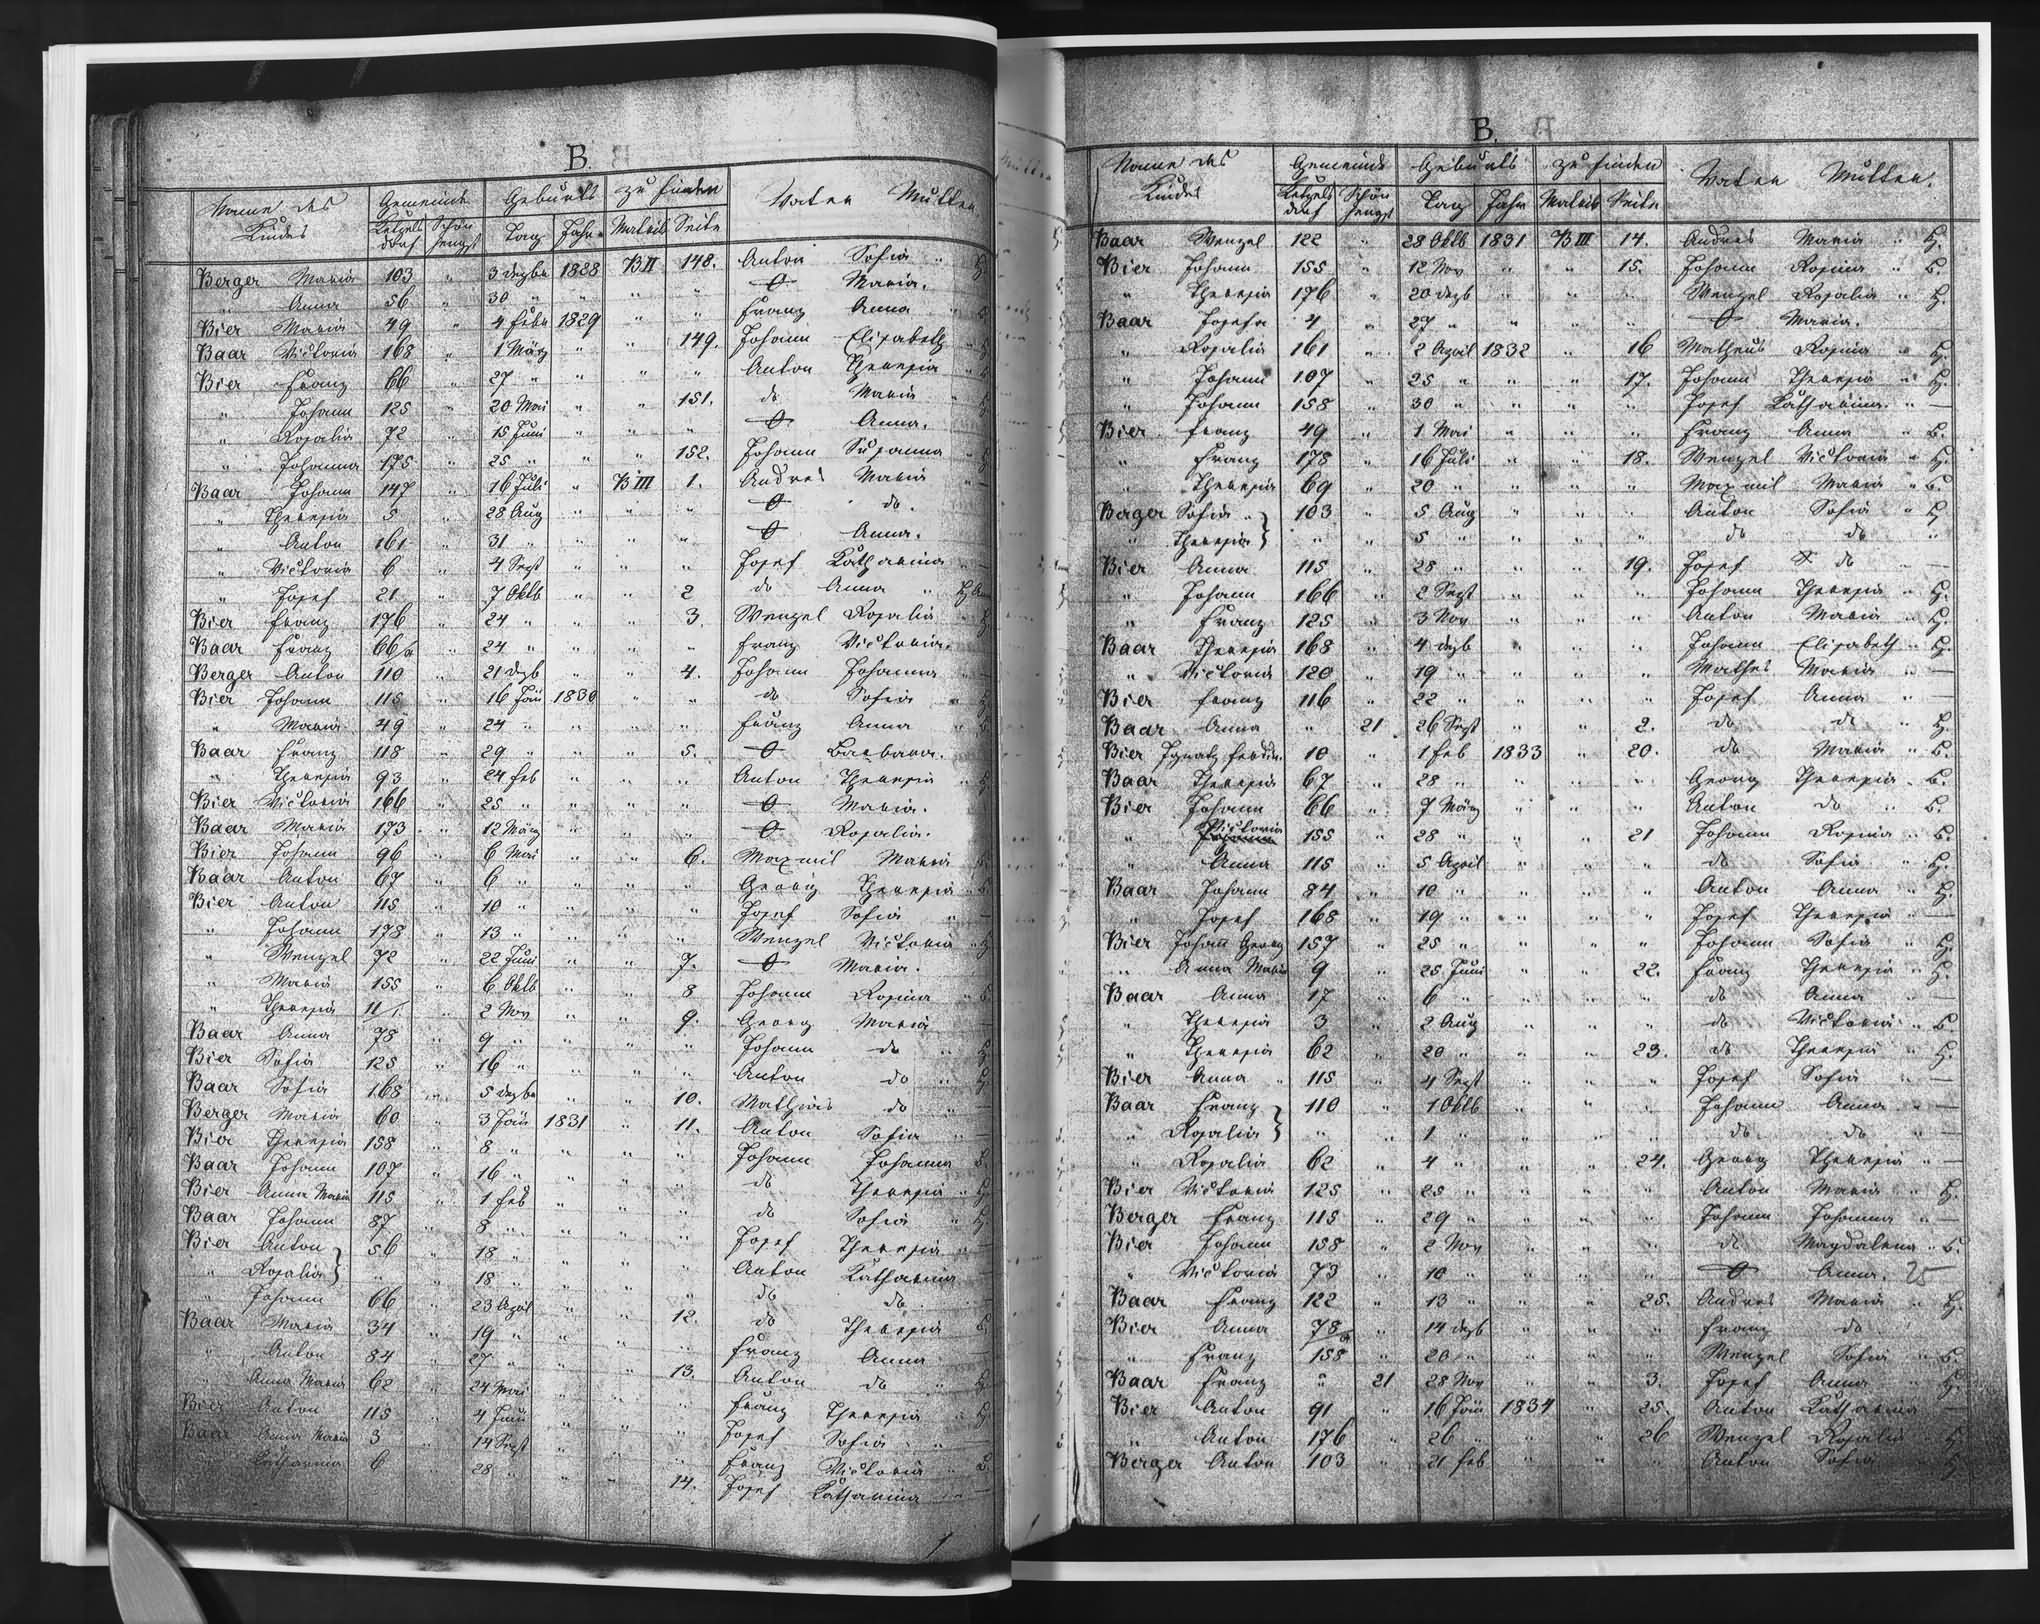 B.
Name des Kindes Gemeinde Geburts zu finden Vater Mutter
Ketzelsdorf Schönhengst Tag Jahr Matrik Seite
Berger Maria 103 " 3 dezbr 1828 B II 148. Anton Sofia " H.
" Anna 56 " 30 " " " " O Maria.
Bier Maria 49 " 4 febr 1829 " " Franz Anna "
Baar Victoria 168 " 1 März " " 149. Johann Elisabeth "
Bier Franz 66 " 27 " " " " Anton Theresia "
" Johann 125 " 20 Mai " " 151. do Maria "
" Rosalia 72 " 15 Juni " " " O Anna.
" Johanna 175 " 25 " " " 152. Johann Susanna "
Baar Johann 147 " 16 Juli " B III 1. Andres Maria " —
" Theresia 5 " 28 Aug " " " O do.
" Anton 161 " 31 " " " " O Anna.
" Victoria 6 " 4 Sept " " " Josef Katharina " —
" Josef 21 " 7 Oktb " " 2 do Anna "
Bier Franz 176 " 24 " " " 3. Wenzel Rosalia "
Baar Franz 66/a " 24 " " " " Franz Victoria.
Berger Anton 110 " 21 dezb " " 4. Johann Johanna " —
Bier Johann 115 " 16 Jän 1830 " " do Sofia "
" Maria 49 " 24 " " " " Franz Anna "
Baar Franz 118 " 29 " " " 5. O Barbara.
" Theresia 93 " 24 feb " " " Anton Theresia "
Bier Victoria 166 " 25 " " " " O Maria.
Baar Maria 173 " 12 März " " " O Rosalia.
Bier Johann 96 " 6 Mai " " 6. Maxmil Maria "
Baar Anton 67 " 6 " " " " Georg Theresia "
Bier Anton 115 " 10 " " " " Josef Sofia " —
" Johann 178 " 13 " " " " Wenzel Victoria " H
" Wenzel 72 " 22 Juni " " 7. O Maria.
" Maria 155 " 6 Oktb " " 8 Johann Rosina "
" Theresia 11/1. " 2 Nov " " 9. Georg Maria —
Baar Anna 78 " 9 " " " " Johann do "
Bier Sofia 125 " 16 " " " " Anton do " H.
Baar Sofia 168 " 5 dezbr " " 10. Mathias do " —
Berger Maria 60 " 3 Jän 1831 " 11. Anton Sofia " —
Bier Theresia 158 " 8 " " " " Johann Johanna B.
Baar Johann 107 " 16 " " " " do Theresia " H.
Bier Anna Maria 115 " 1 feb " " " do Sofia " H.
Baar Johann 87 " 8 " " " " Josef Theresia " —
Bier Anton } 56 " 18 " " " " Anton Katharina —
" Rosalia } " " 18 " " " " do do —
" Johann 66 " 23 April " " 12. do Theresia B.
Baar Maria 34 " 19 " " " " Franz Anna —
" Anton 84 " 27 " " " 13. Anton do " H.
" Anna Maria 62 " 24 Mai " " " Franz Theresia " H
Bier Anton 115 " 4 Juni " " " Josef Sofia "
Baar Anna Maria 3 " 14 Sept " " " Franz Victoria " B.
" Katharina 6 " 28 " " " 14. Josef Katharina " —
1
B.
Name des Kindes Gemeinde Geburts zu finden Vater Mutter.
Ketzelsdorf Schönhengst Tag Jahr Matrik Seite
Baar Wenzel 122 " 28 Oktb 1831 B III 14. Andres Maria " H.
Bier Johann 155 " 12 Nov " " 15. Johann Rosina " B.
" Theresia 176 " 20 dezb " " " Wenzel Rosalia " H.
Baar Josefa 4 " 27 " " " " O Maria.
" Rosalia 161 " 2 April 1832 " 16 Matheus Rosina " H.
" Johann 107 " 25 " " " 17. Johann Theresia " H.
" Johann 158 " 30 " " " " Josef Katharina " —
Bier Franz 49 " 1 Mai " " " Franz Anna " B.
" Franz 178 " 16 Juli " " 18. Wenzel Victoria " H.
" Theresia 69 " 20 " " " " Maxmil Maria " B.
Berger Sofia } 103 " 5 Aug " " " Anton Sofia " H
" Theresia } " " 5 " " " " do do "
Bier Anna 115 " 28 " " " 19. Josef do —
" Johann 166 " 2 Sept " " " Johann Theresia " H.
" Franz 125 " 3 Nov " " " Anton Maria " H.
Baar Theresia 168 " 4 dezb " " " Johann Elisabeth " H.
" Victoria 120 " 19 " " " " Mathes Maria " —
Bier Franz 116 " 22 " " " " Josef Anna " —
Baar Anna " 21 26 Sept " " 2. do do " H.
Bier Ignatz Ferdin. 10 " 1 feb 1833 " 20. do Maria " B.
Baar Theresia 67 " 28 " " " " Georg Theresia " B.
Bier Johann 66 " 7 März " " " Anton do " B.
" Victoria 155 " 28 " " " 21 Johann Rosina " B.
" Anna 115 " 5 April " " " do Sofia " H.
Baar Johann 84 " 10 " " " " Anton Anna " H.
" Josef 168 " 19 " " " " Josef Theresia " —
Bier Johann Georg 157 " 25 " " " " Johann Sofia " H.
" Anna Maria 9 " 25 Juni " " 22. Franz Theresia " H.
Baar Anna 17 " 6 " " " " do Anna " —
" Theresia 3 " 2 Aug " " " do Victoria " B
" Theresia 62 " 20 " " " 23. do Theresia " H.
Bier Anna " 115 " 4 Sept " " " Josef Sofia " —
Baar Franz } 110 " 1 Oktb " " " Johann Anna " —
" Rosalia } " " 1 " " " " do do " —
" Rosalia 62 " 4 " " " 24. Georg Theresia " —
Bier Victoria 125 " 25 " " " " Anton Maria " H.
Berger Franz 115 " 29 " " " " Johann Johanna " —
Bier Johann 158 " 2 Nov " " " do Magdalena " B.
" Victoria 73 " 10 " " " " O Anna. 25
Baar Franz 122 " 13 " " " 25. Andres Maria " H.
Bier Anna 78/a " 14 dezb " " " Franz do
" Franz 158 " 20 " " " " Wenzel Sofia " B.
Baar Franz " 21 28 Nov " " 3. Josef Anna " H.
Bier Anton 91 " 16 Jän 1834 " 25. Anton Katharina —
" Anton 176 " 26 " " " 26 Wenzel Rosalia " H
Berger Anton 103 " 21 feb " " " Anton Sofia " H